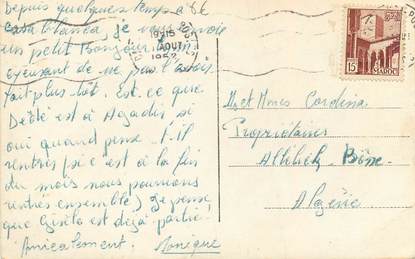 Depuis quelques temps à
Casablanca je vous envoie
un petit Bonjour, m'
excusant de ne pas l'avoir
fait plus tôt. Est ce que
Dédé est à Agadir si
oui quand pense-t-il
rentrer (si c'est à la fin
du mois nous pourrions
rentrer ensemble) Je pense
que Gisèle est déjà partie.
Amicalement. Monique
1915
AOUT
1952
15F
MAROC
M et Mmes Cardina
Propriétaires
Allélick - Bône
Algérie